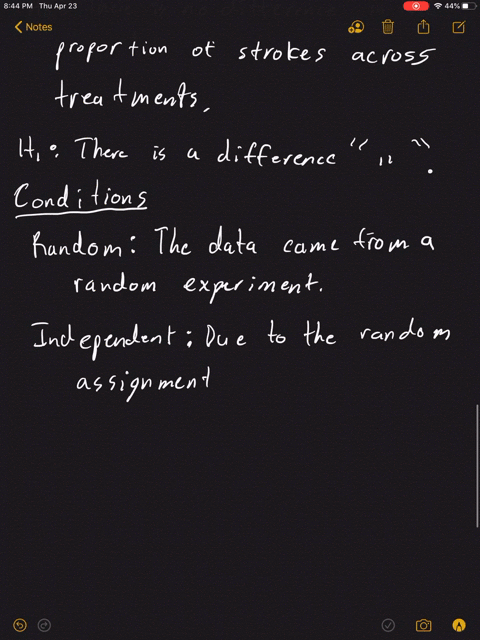 8:44 PM Thu Apr 23
44%
Notes
proportion of strokes across
treatments.
H₁: There is a difference " ,, ".
Conditions
Random: The data came from a
random experiment.
Independent: Due to the random
assignment